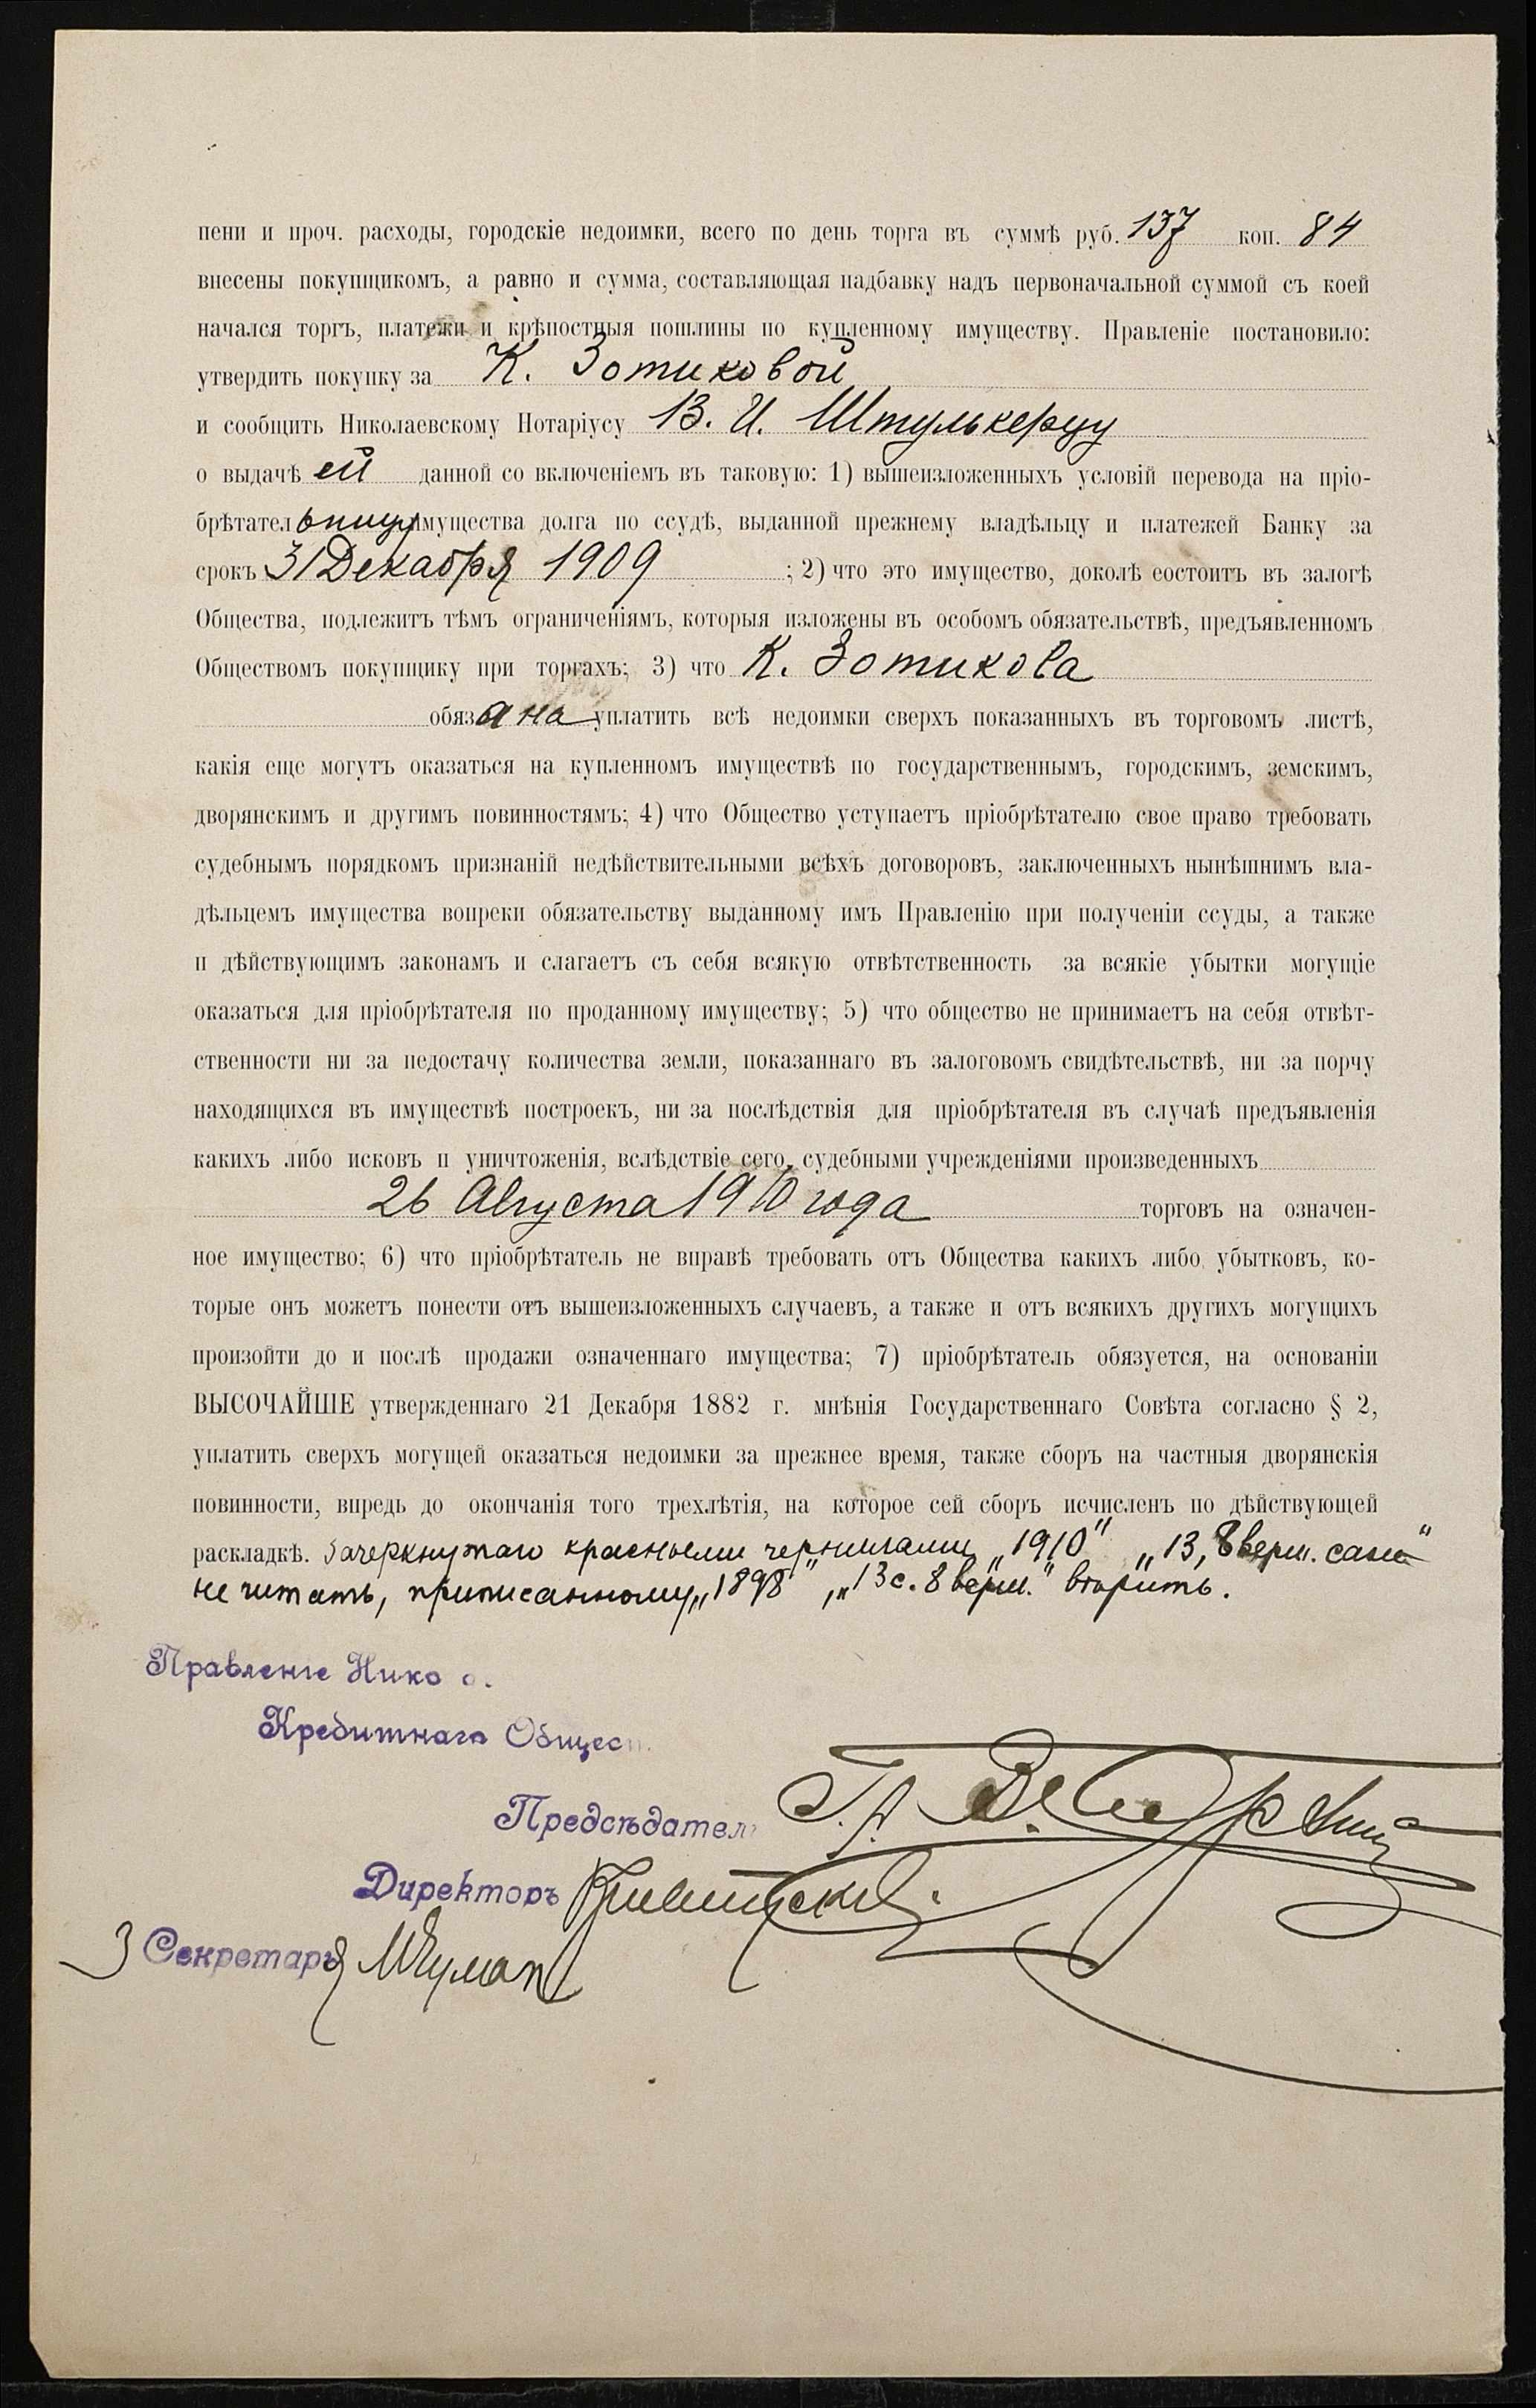 пени и проч. расходы, городскіе недоимки, всего по день торга въ суммѣ руб. 137 коп. 84
внесены покупщикомъ, а равно и сумма, составляющая надбавку надъ первоначальной суммой съ коей
начался торгъ, платежи и крѣпостныя пошлины по купленному имуществу. Правленіе постановило:
утвердить покупку за К. Зотиковой
и сообщить Николаевскому Нотаріусу В. И. Штулькерцу
о выдачѣ ей данной со включеніемъ въ таковую: 1) вышеизложенныхъ условій перевода на пріо-
брѣтательницу имущества долга по ссудѣ, выданной прежнему владѣльцу и платежей Банку за
срокъ 31 Декабря 1909 ; 2) что это имущество, доколѣ состоитъ въ залогѣ
Общества, подлежитъ тѣмъ ограниченіямъ, которыя изложены въ особомъ обязательствѣ, предъявленномъ
Обществомъ покупщику при торгахъ; 3) что К. Зотикова
обязана уплатить всѣ недоимки сверхъ показанныхъ въ торговомъ листѣ,
какія еще могутъ оказаться на купленномъ имуществѣ по государственнымъ, городскимъ, земскимъ,
дворянскимъ и другимъ повинностямъ; 4) что Общество уступаетъ пріобрѣтателю свое право требовать
судебнымъ порядкомъ признаній недѣйствительными всѣхъ договоровъ, заключенныхъ нынѣшнимъ вла-
дѣльцемъ имущества вопреки обязательству выданному имъ Правленію при полученіи ссуды, а также
и дѣйствующимъ законамъ и слагаетъ съ себя всякую отвѣтственность за всякіе убытки могущіе
оказаться для пріобрѣтателя по проданному имуществу; 5) что общество не принимаетъ на себя отвѣт-
ственности ни за недостачу количества земли, показаннаго въ залоговомъ свидѣтельствѣ, ни за порчу
находящихся въ имуществѣ построекъ, ни за послѣдствія для пріобрѣтателя въ случаѣ предъявленія
какихъ либо исковъ и уничтоженія, вслѣдствіе сего, судебными учрежденіями произведенныхъ
26 Августа 1910 года торговъ на означен-
ное имущество; 6) что пріобрѣтатель не вправѣ требовать отъ Общества какихъ либо убытковъ, ко-
торые онъ можетъ понести отъ вышеизложенныхъ случаевъ, а также и отъ всякихъ другихъ могущихъ
произойти до и послѣ продажи означеннаго имущества; 7) пріобрѣтатель обязуется, на основаніи
ВЫСОЧАЙШЕ утвержденнаго 21 Декабря 1882 г. мнѣнія Государственнаго Совѣта согласно § 2,
уплатить сверхъ могущей оказаться недоимки за прежнее время, также сборъ на частныя дворянскія
повинности, впредь до окончанія того трехлѣтія, на которое сей сборъ исчисленъ по дѣйствующей
раскладкѣ. Зачеркнутаго красными чернилами „1910" „13, 8 верш. саж"
не читать, приписанному „1898", „13 с. 8 верш." вѣрить.
Правленіе Нико
Кредитнаго Общес
Предсѣдател
Директоръ
Секретаря